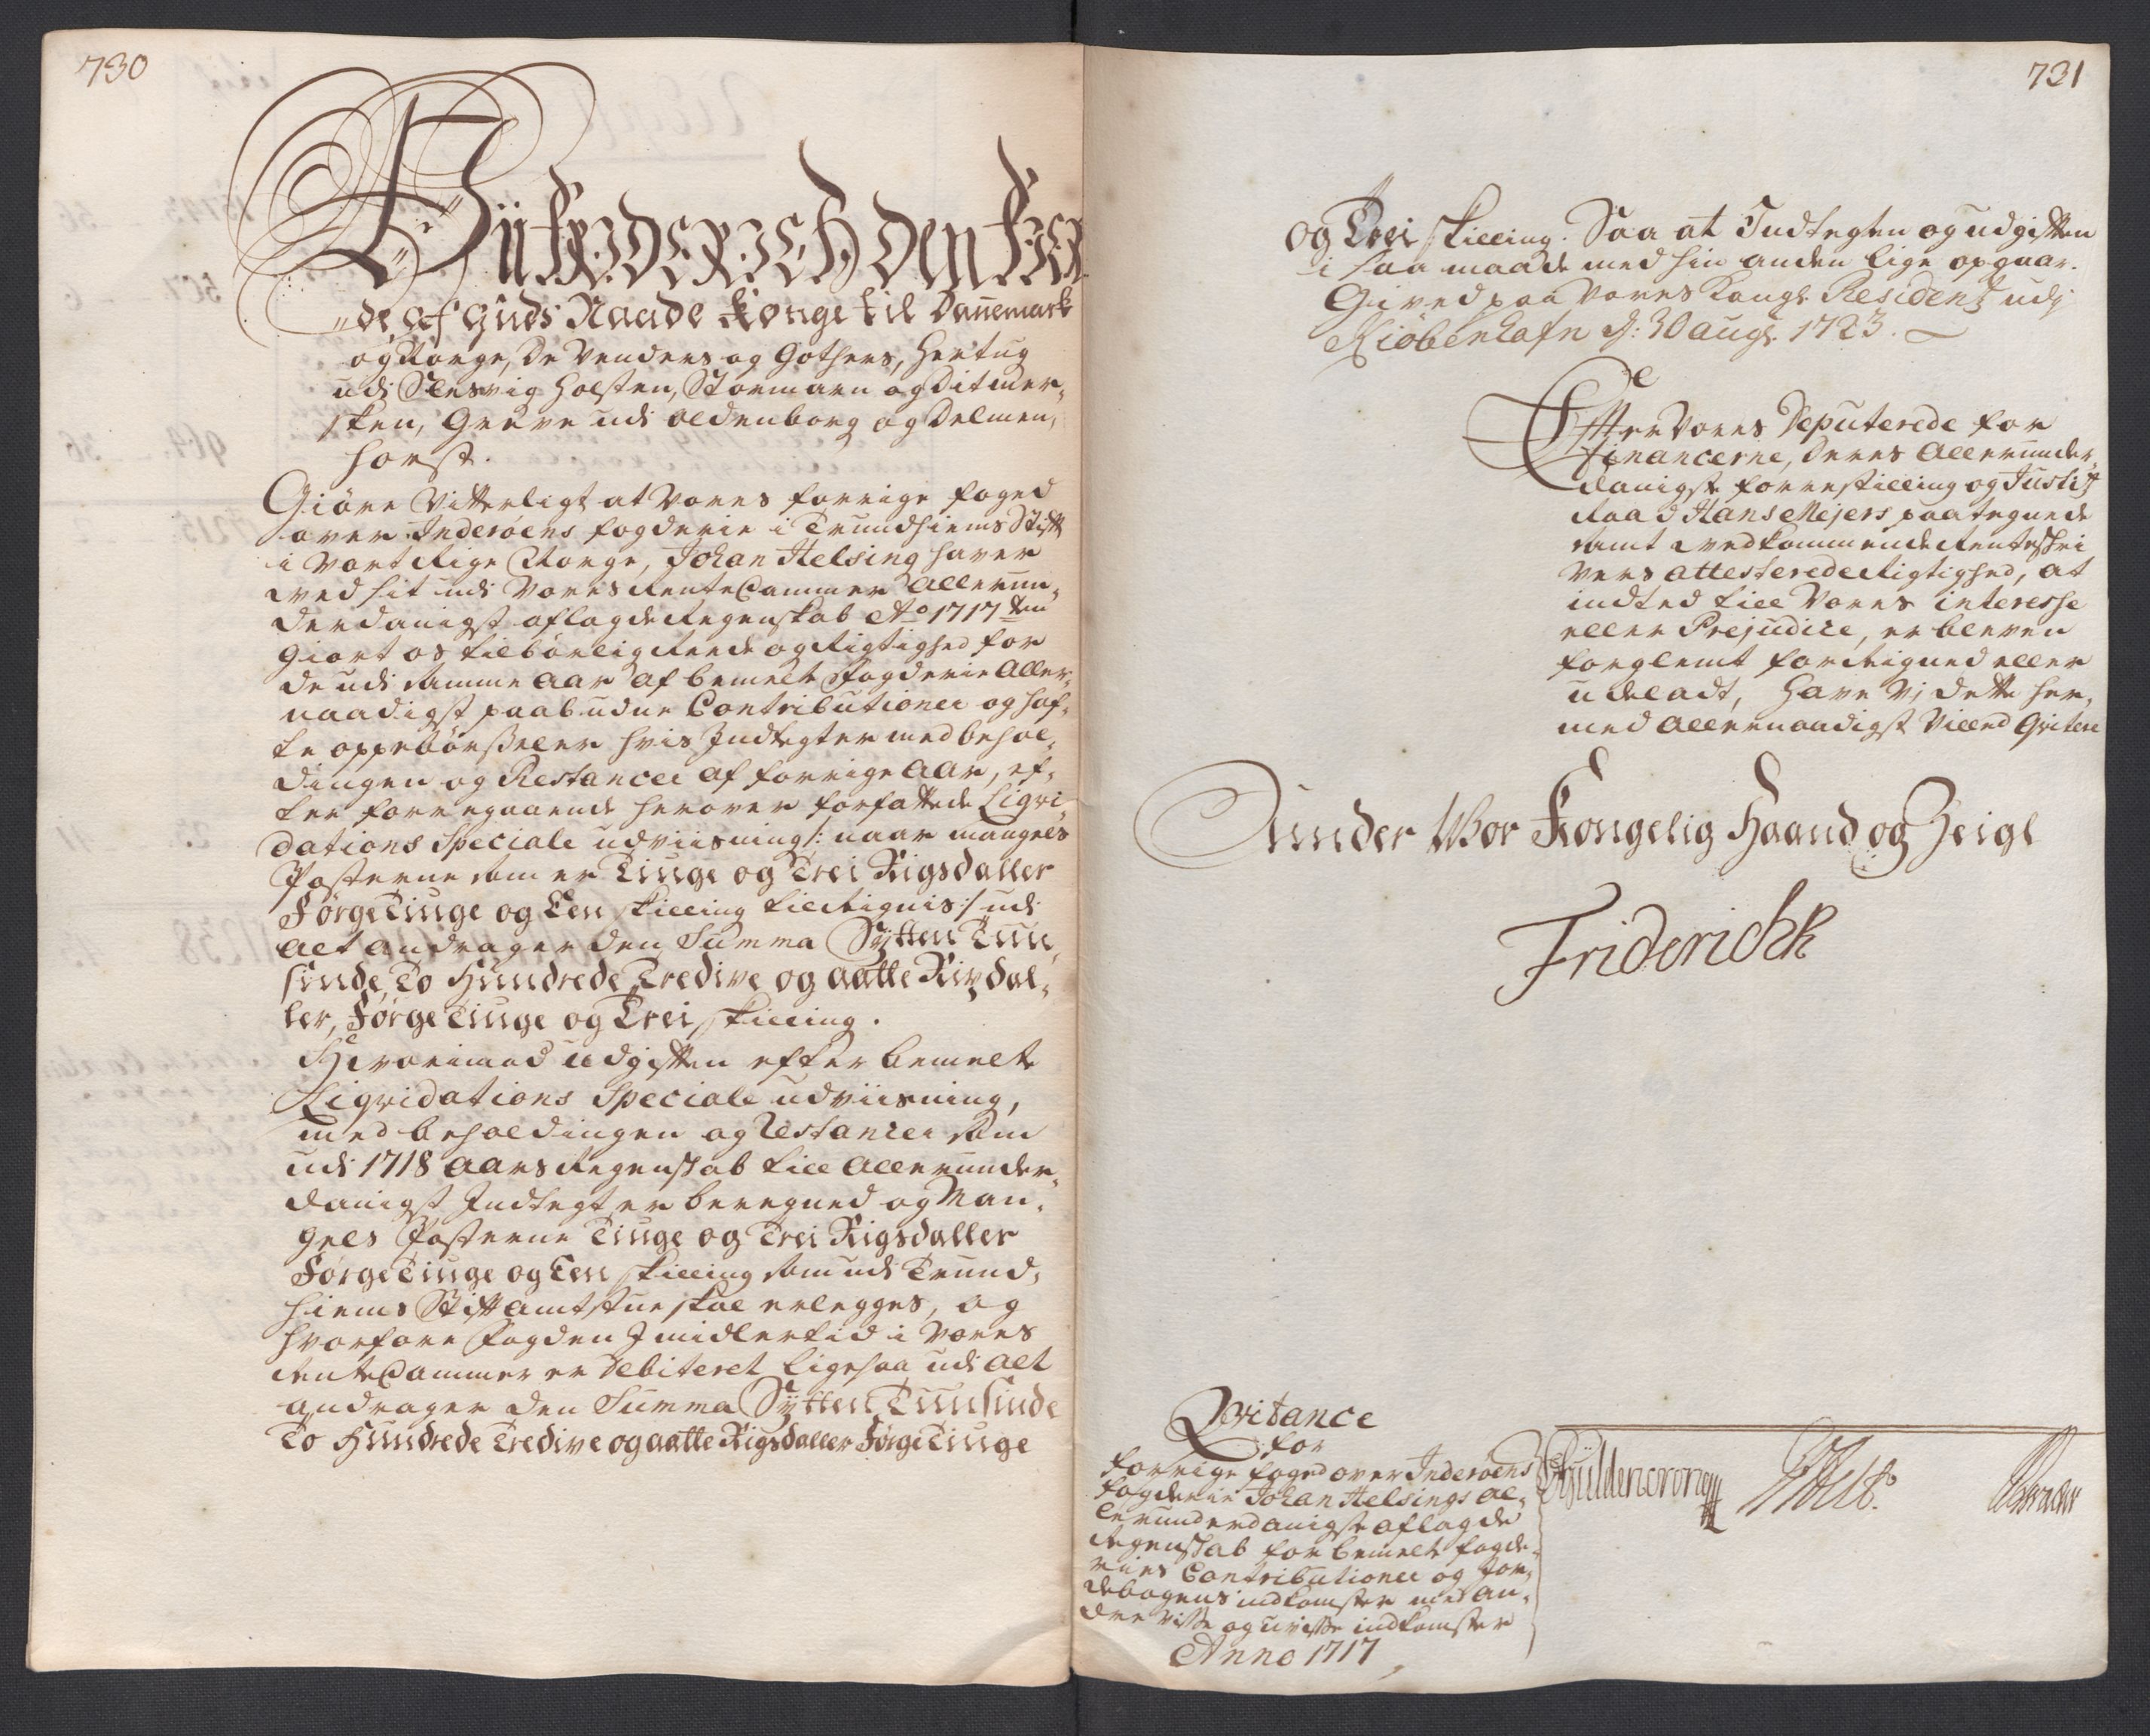 730
Wii Friderich den Fier
de af Guds Naade Konge til Dannemark
og Norge, de Venders og Gothers, Hertug
udi Slesvig Holsten, Stormarn og Ditmer,
sken, Greve udi Oldenborg og Delmen,
horst.
Giöre Vitterligt at Vores forrige foged
over Inderöens fogderie i Trundhiems Stift
i Vort Rige Norge, Johan Helsing haver
ved sit udi Vores Rente Cammer Allerun,
derdanigst aflagde Regenskab Ao 1717 ten
Giort os tilbörlig Reede og Rigtighed for
de udi samme Aar af bemelte Fogderie Aller,
naadigst paabudne Contributioner og haf,
te oppebörseler hvis Indtegter med behol,
dingen og Restancer af forrige Aar, ef,
ter foregaaende herover forfattede Liqvi,
dations Speciale udviisning /: naar mangels
Posterne som er Tiuge og Trei Rigsdaller
Förgetiuge og Een skilling tillegnis :/ udi
alt andrager den Summa Sÿtten Tuu,
sinde, To Hundrede Tredive og aatte Rixdal,
ler, Förgetiuge og Trei skilling.
Hvorimod udgiften efter bemelte
Liqvidations Speciale udviisning,
med beholdingen og Restancer som
udi 1718 Aars Regenskab till Allerunder,
danigst Indtegt er beregned og Man,
gels Posterne Tiuge og Trei Rigsdaller
Förgetiuge og Een skilling som udi Trund,
hiems Stiftamtstue skal erlegges, og
hvorfore Fogden Imidlertid i Vores
Rente Cammer er Debiteret ligesaa udi alt
andrager den Summa Sÿtten Tuusinde
To Hundrede Tredive og aatte Rigsdaller Förgetiuge
731
og Trei skilling. Saa at Indtegten og udgiften
i saa maade med hin anden lige opgaar.
Gived paa Vores Kongl. Residentz udj
Kiöbenhafn d: 30 augs. 1723.
Efter Vores Deputerede for
Financerne, deres Allerunder,
danigste forrestilling og Justitz
Raad Hans Mejers paategnede
samt vedkommende Renteskri
vers attesterede Rigtighed, at
indted till Vores interesse
eller Prejudice, er bleven
forglemt forregned eller
udeladt, have Vi dette her,
med allernaadigst Villed Qvitere
Under Vor Kongelig Haand og Zeigl
Friderich R
Qvitance
for
forrige foged over Inderöens
fogderie Johan Helsings al,
lerunderdanigste aflagde
Regenskab for bemelte fogde,
riies Contributioner og Jor,
debogens indkomster med an,
dre visse og uvisse indkomster
Anno 1717
Güldencrong